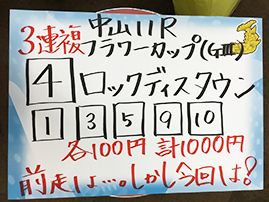 中山11R
3連複フラワーカップ(GⅢ)
4 ロックディスタウン
1 3 5 9 10
各100円 計1000円
前走は…。しかし今回は!